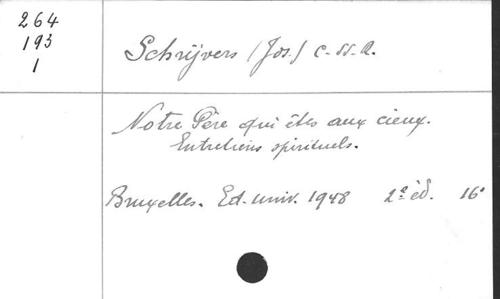 264
193
1
Schrijvers (Jos.) C. SS. R.
Notre Père qui êtes aux cieux.
Entretiens spirituels.
Bruxelles. Ed. univ. 1948 2e éd. 16°